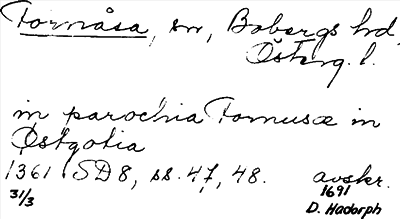 Fornåsa, sn, Bobergs hd,
Österg. l.
in parochia Fornusæ in
Østgotia
1361 SD8, ss. 47, 48. avskr.
31/3 1691
D. Hadorph